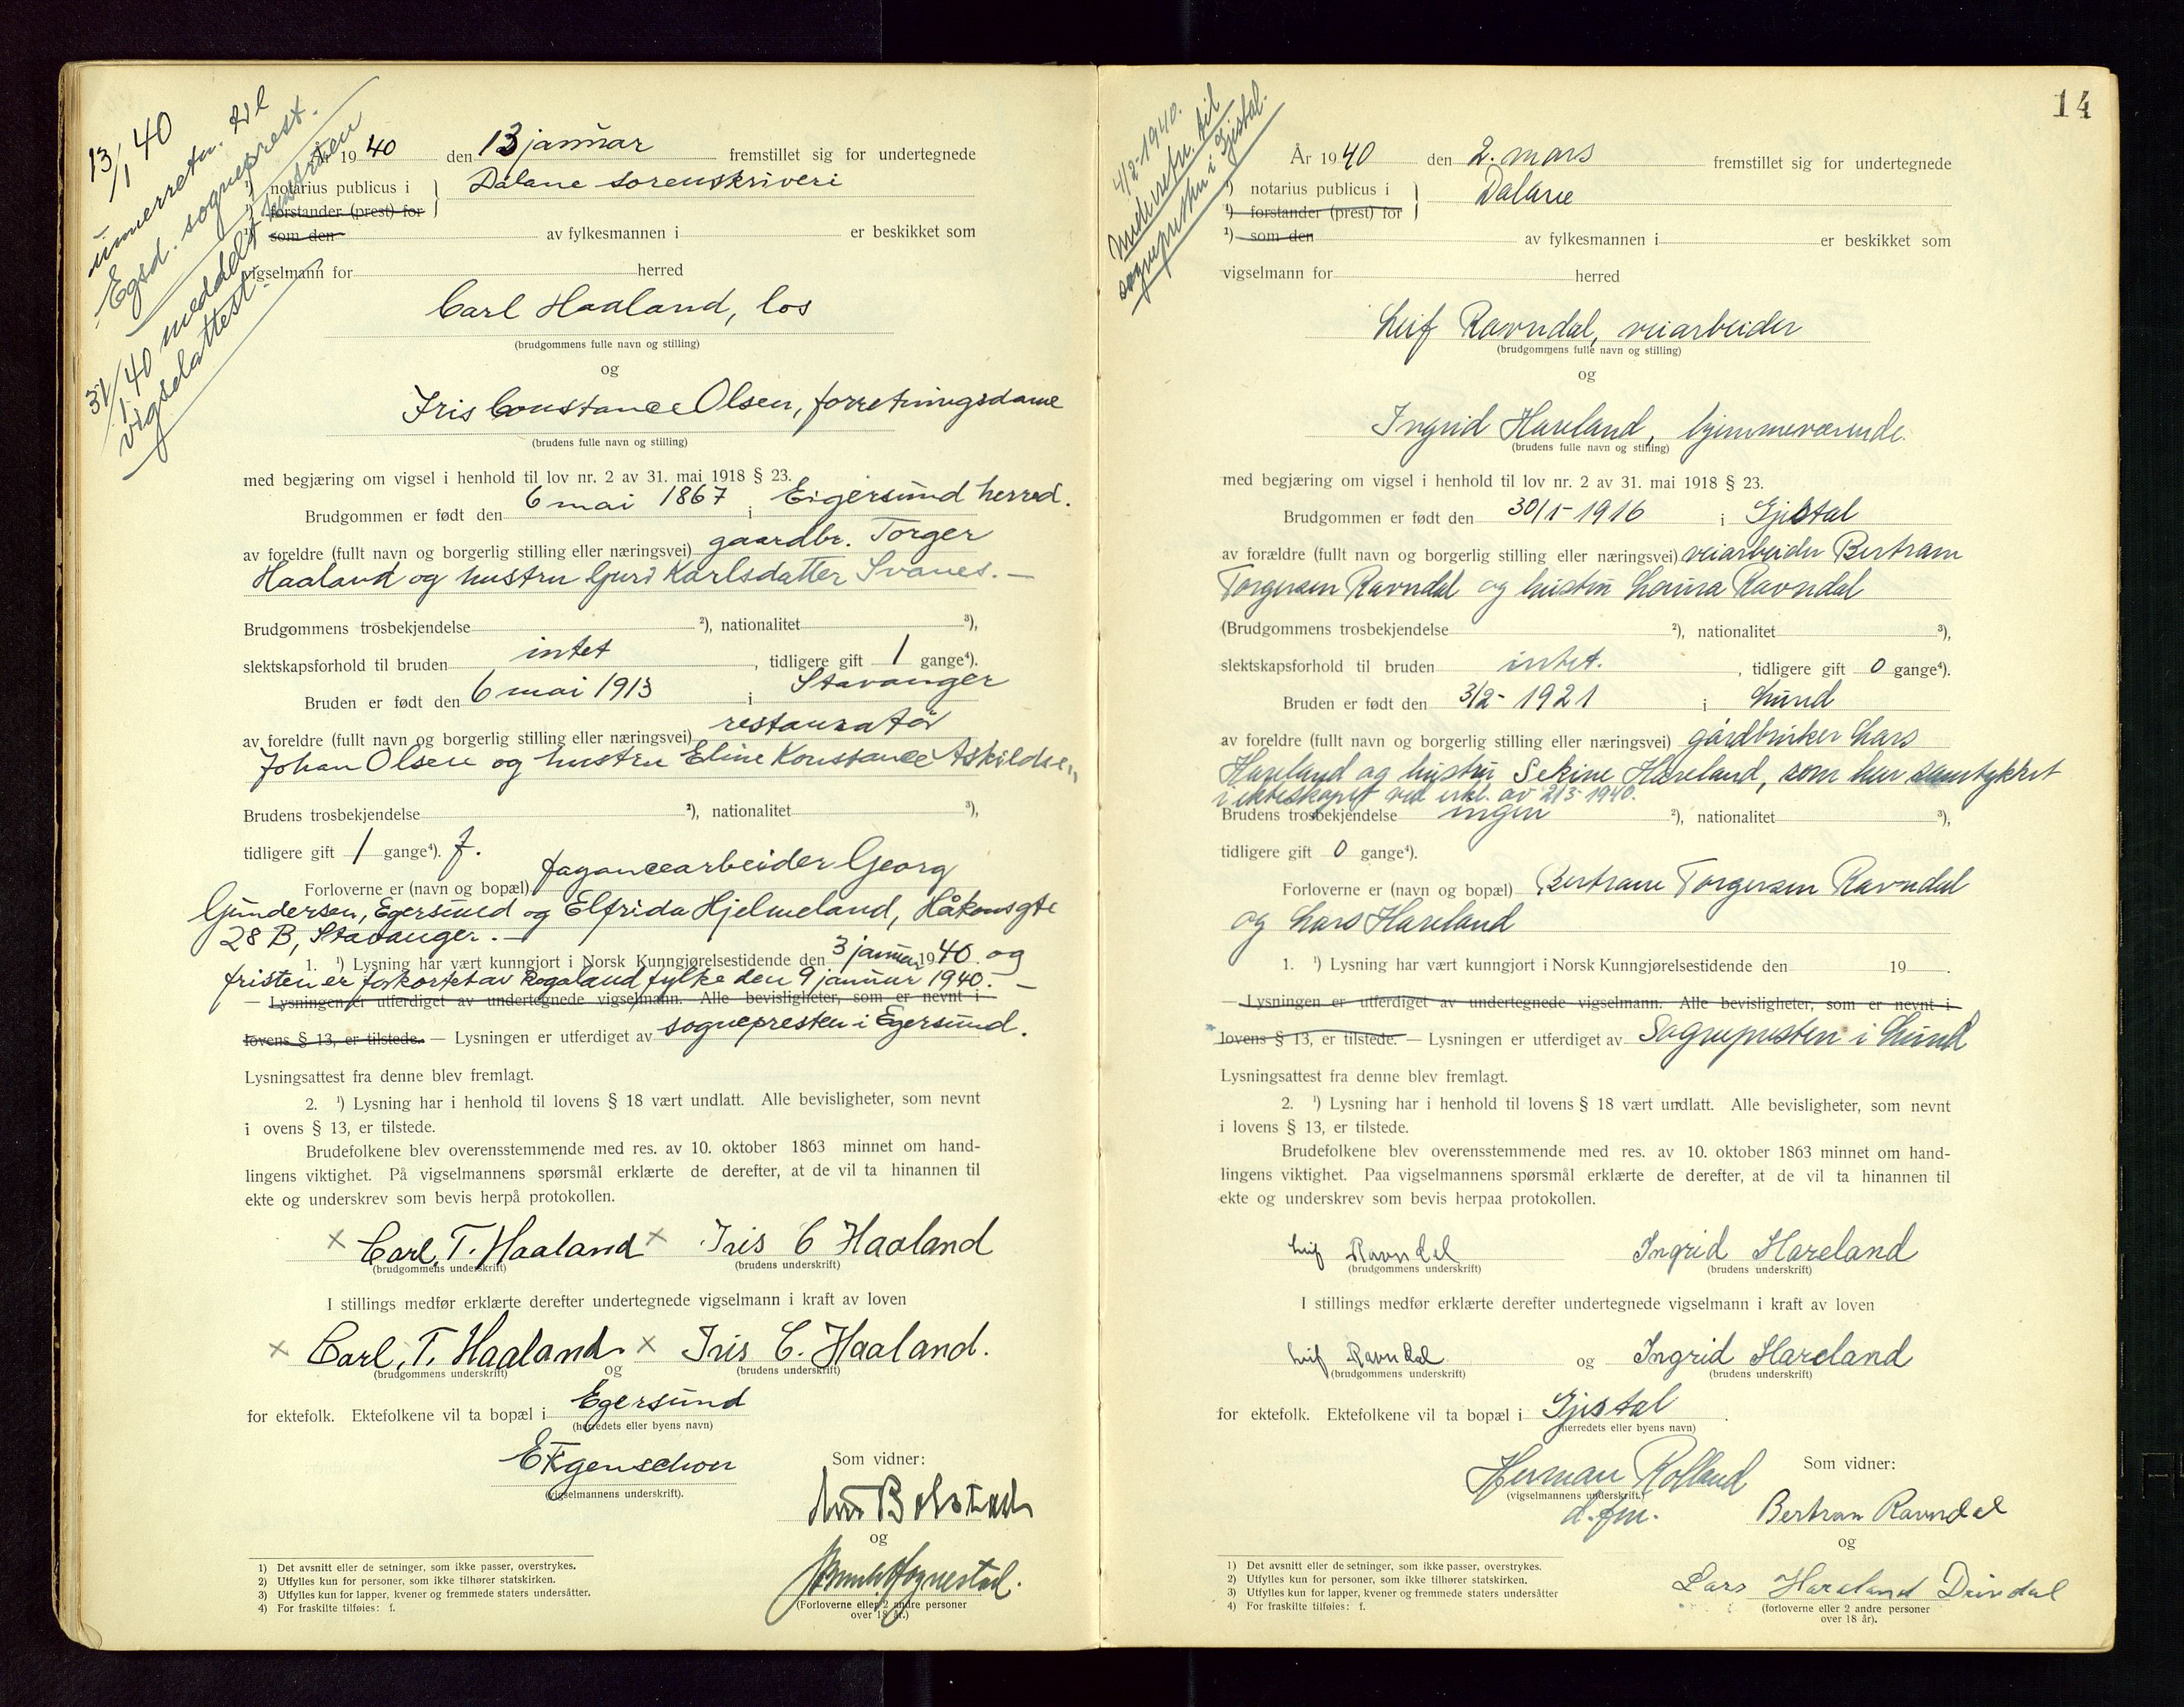 13/1 40
underretn. til
Egsd. sogneprest.
31/1 40 meddelt hustruen
vigselattest.
År 1940 den 13 januar fremstillet sig for undertegnede
¹) notarius publicus i Dalane sorenskriveri
forstander (prest) for
som den av fylkesmannen i er beskikket som
vigselmann for herred
Carl Haaland, los
(brudgommens fulle navn og stilling)
og
Iris Constance Olsen, forretningsdame
(brudens fulle navn og stilling)
med begjæring om vigsel i henhold til lov nr. 2 av 31. mai 1918 § 23.
Brudgommen er født den 6 mai 1867 i Eigersund herred.
av foreldre (fullt navn og borgerlig stilling eller næringsvei) gaardbr. Torger
Haaland og hustru Guri Karlsdatter Svanes. —
Brudgommens trosbekjendelse ²), nationalitet ³),
slektskapsforhold til bruden intet, tidligere gift 1 gange⁴).
Bruden er født den 6 mai 1913 i Stavanger
av foreldre (fullt navn og borgerlig stilling eller næringsvei) restauratør
Johan Olsen og hustru Eline Konstance Askildsen
Brudens trosbekjendelse ²), nationalitet ³),
tidligere gift 1 gange⁴). f.
Forloverne er (navn og bopæl) fayancearbeider Georg
Gundersen, Egersund og Elfrida Hjelmeland, Håkonsgte
28 B, Stavanger. —
1. ¹) Lysning har vært kunngjort i Norsk Kunngjørelsestidende den 3 januar 1940 og
fristen er forkortet av Rogaland fylke den 9 januar 1940. —
— Lysningen er utferdiget av undertegnede vigselmann. Alle bevisligheter, som er nevnt i
lovens § 13, er tilstede. — Lysningen er utferdiget av sognepresten i Egersund.
Lysningsattest fra denne blev fremlagt.
2. ¹) Lysning har i henhold til lovens § 18 vært undlatt. Alle bevisligheter, som nevnt
i ovens § 13, er tilstede.
Brudefolkene blev overensstemmende med res. av 10. oktober 1863 minnet om hand-
lingens viktighet. På vigselmannens spørsmål erklærte de derefter, at de vil ta hinannen til
ekte og underskrev som bevis herpå protokollen.
× Carl, T. Haaland × Iris C Haaland
(brudgommens underskrift) (brudens underskrift)
I stillings medfør erklærte derefter undertegnede vigselmann i kraft av loven
× Carl, T. Haaland. × Iris C. Haaland.
(brudgommens underskrift) og (brudens underskrift)
for ektefolk. Ektefolkene vil ta bopæl i Egersund
(herredets eller byens navn)
Som vidner:
(vigselmannens underskrift).
og
(Forloverne eller 2 andre personer
over 18 år.)
1) Det avsnitt eller de setninger, som ikke passer, overstrykes.
2) Utfylles kun for personer, som ikke tilhører statskirken.
3) Utfylles kun for lapper, kvener og fremmede staters undersåtter.
4) For fraskilte tilføies: f.
14
4/2-1940.
Underretn. til
sognepresten i Gjestal.
År 1940 den 2. mars fremstillet sig for undertegnede
¹) notarius publicus i Dalane
¹) forstander (prest) for
¹) som den av fylkesmannen i er beskikket som
vigselmann for herred
Leif Ravndal, veiarbeider
(brudgommens fulle navn og stilling)
og
Ingrid Hareland, hjemmeværende.
(brudens fulle navn og stilling)
med begjæring om vigsel i henhold til lov nr. 2 av 31. mai 1918 § 23.
Brudgommen er født den 30/1-1916 i Gjestal
av forældre (fullt navn og borgerlig stilling eller næringsvei) veiarbeider Bertram
Torgersen Ravndal og hustru Laura Ravndal
(Brudgommens trosbekjendelse ²), nationalitet ³),
slektskapsforhold til bruden intet., tidligere gift 0 gange⁴).
Bruden er født den 3/2-1921 i Lund
av foreldre (fullt navn og borgerlig stilling eller næringsvei) gårdbruker Lars
Hareland og hustru Sekine Hareland, som har samtykket
i ekteskapet ved erkl. av 2/3-1940.
Brudens trosbekjendelse ingen ²), nationalitet ³),
tidligere gift 0 gange⁴).
Forloverne er (navn og bopæl) Bertram Torgersen Ravndal
og Lars Hareland
1. ¹) Lysning har vært kunngjort i Norsk Kunngjørelsestidende den 19 .
— Lysningen er utferdiget av undertegnede vigselmann. Alle bevisligheter, som er nevnt i
lovens § 13, er tilstede. — Lysningen er utferdiget av Sognepresten i Lund
Lysningsattest fra denne blev fremlagt.
2. ¹) Lysning har i henhold til lovens § 18 vært undlatt. Alle bevisligheter, som nevnt
i lovens § 13, er tilstede.
Brudefolkene blev overensstemmende med res. av 10. oktober 1863 minnet om hand-
lingens viktighet. Paa vigselmannens spørsmål erklærte de derefter, at de vil ta hinannen til
ekte og underskrev som bevis herpaa protokollen.
Leif Ravndal Ingrid Hareland
(brudgommens underskrift) (brudens underskrift)
I stillings medfør erklærte derefter undertegnede vigselmann i kraft av loven
Leif Ravndal og Ingrid Hareland
(brudgommens underskrift) (brudens underskrift)
for ektefolk. Ektefolkene vil ta bopæl i Gjestal.
(herredets eller byens navn)
Herman Rolland Som vidner:
(vigselmannens underskrift.)
d. fm. Bertram Ravndal
og
Lars Hareland Drivdal
(forloverne eller 2 andre personer
over 18 år).
1) Det avsnitt eller de setninger, som ikke passer, overstrykes.
2) Utfylles kun for personer, som ikke tilhører statskirken.
3) Utfylles kun for lapper, kvener og fremmede staters undersåtter
4) For fraskilte tilføies: f.